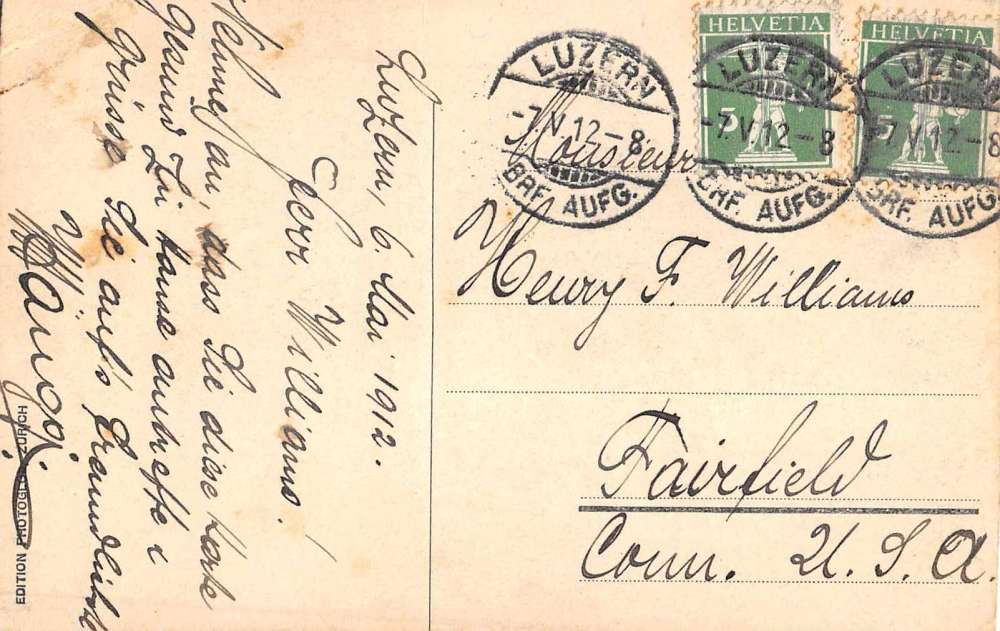 Luzern, 6. Mai 1912.
Herr Williams!
Nehme an, dass Sie diese Karte
gesund zu Hause antreffe &
grüsse Sie auf's freundlichste
Häuggi.
EDITION PHOTOGLOB ZÜRICH
HELVETIA
5
HELVETIA
5
LUZERN
-7.V.12-8
BRF. AUFG.
LUZERN
-7.V.12-8
BRF. AUFG.
LUZERN
-7.V.12-8
BRF. AUFG.
Monsieur
Henry F. Williams
Fairfield
Conn. U. S. A.